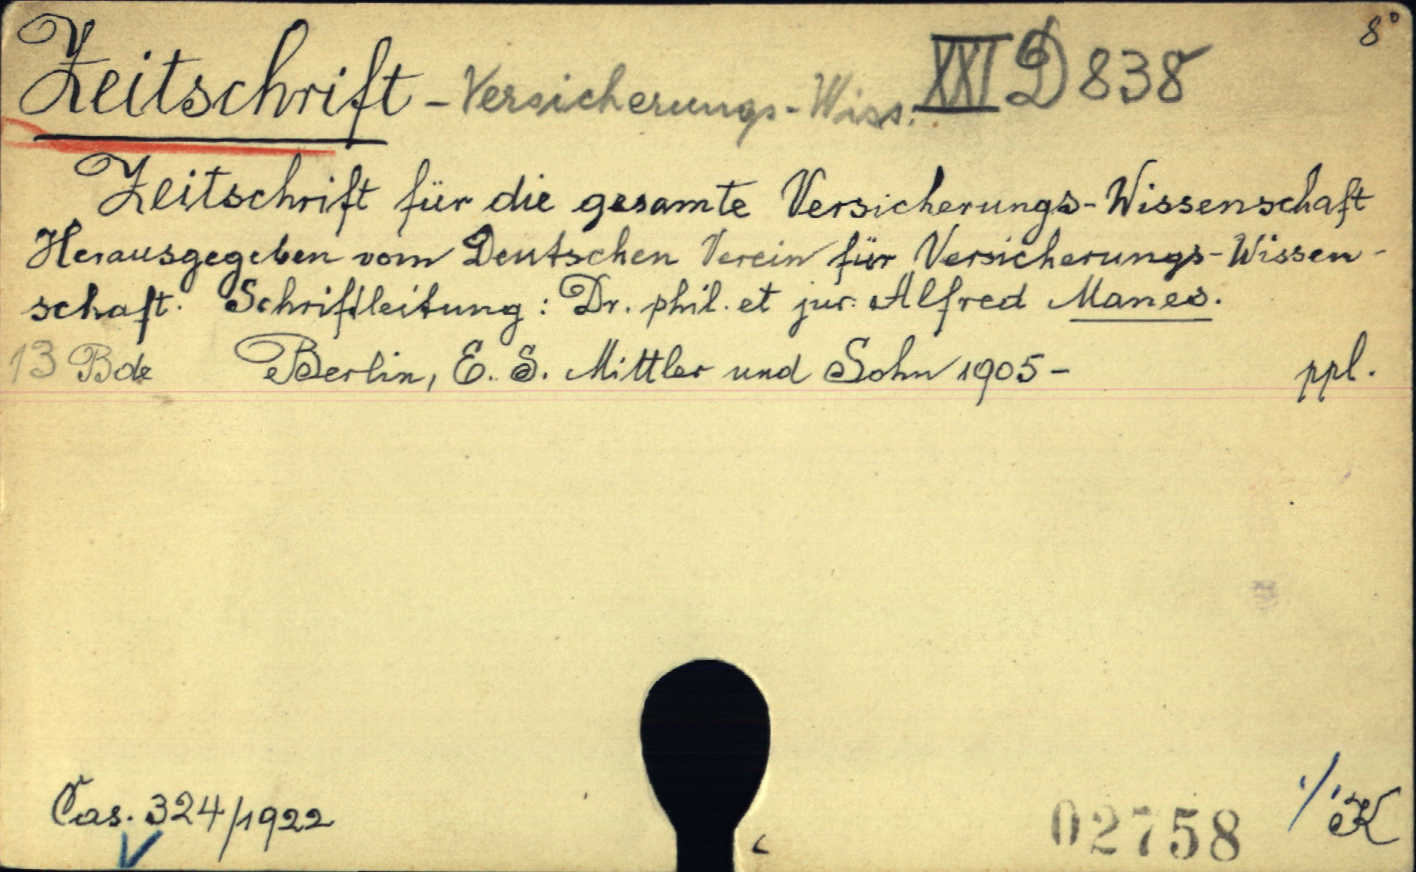 8°
Zeitschrift - Versicherungs-Wiss. XXI D 838
Zeitschrift für die gesamte Versicherungs-Wissenschaft
Herausgegeben vom Deutschen Verein für Versicherungs-Wissen-
schaft. Schriftleitung: Dr. phil. et jur. Alfred Manes.
13 Bde Berlin, E. S. Mittler und Sohn 1905- ppl.
Čas. 324/1922
02758 K